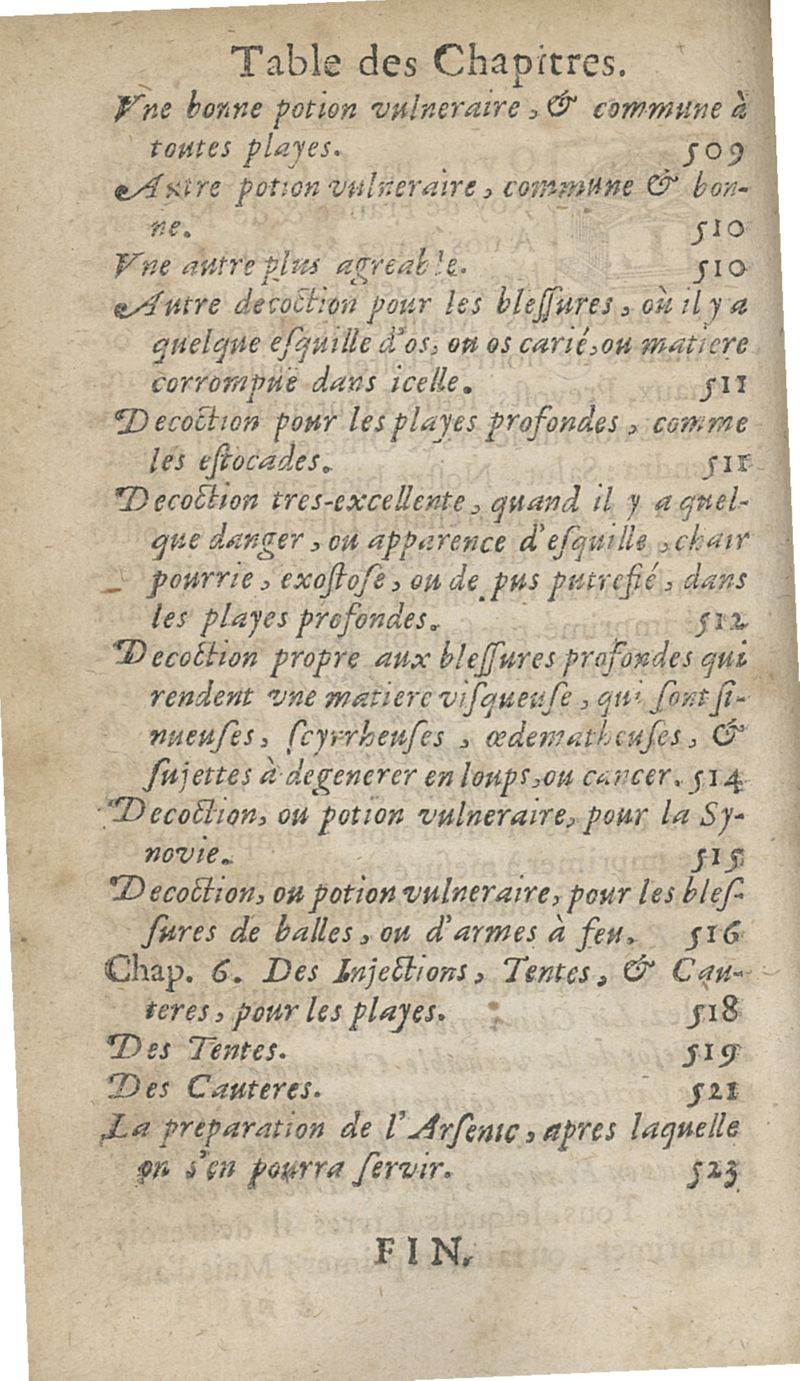 Table des Chapitres.
Vne bonne potion vulneraire, & commune à
toutes playes. 509
Autre potion vulneraire, commune & bon-
ne. 510
Vne autre plus agreable. 510
Autre decoction pour les bleſſures, où il y a
quelque eſquille d'os, ou os carié, ou matiere
corrompuë dans icelle. 511
Decoction pour les playes profondes, comme
les eſtocades. 511
Decoction tres-excellente, quand il y a quel-
que danger, ou apparence d'eſquille, chair
pourrie, exoſtoſe, ou de pus putrefié, dans
les playes profondes. 512
Decoction propre aux bleſſures profondes qui
rendent vne matiere viſqueuſe, qui ſont ſi-
nueuſes, ſcyrrheuſes, œdematheuſes, &
ſujettes à degenerer en loups, ou cancer. 514
Decoction, ou potion vulneraire, pour la Sy-
novie. 515
Decoction, ou potion vulneraire, pour les bleſ-
ſures de balles, ou d'armes à feu. 516
Chap. 6. Des Injections, Tentes, & Cau-
teres, pour les playes. 518
Des Tentes. 519
Des Cauteres. 521
La preparation de l'Arſenic, apres laquelle
on s'en pourra ſervir. 523
FIN.